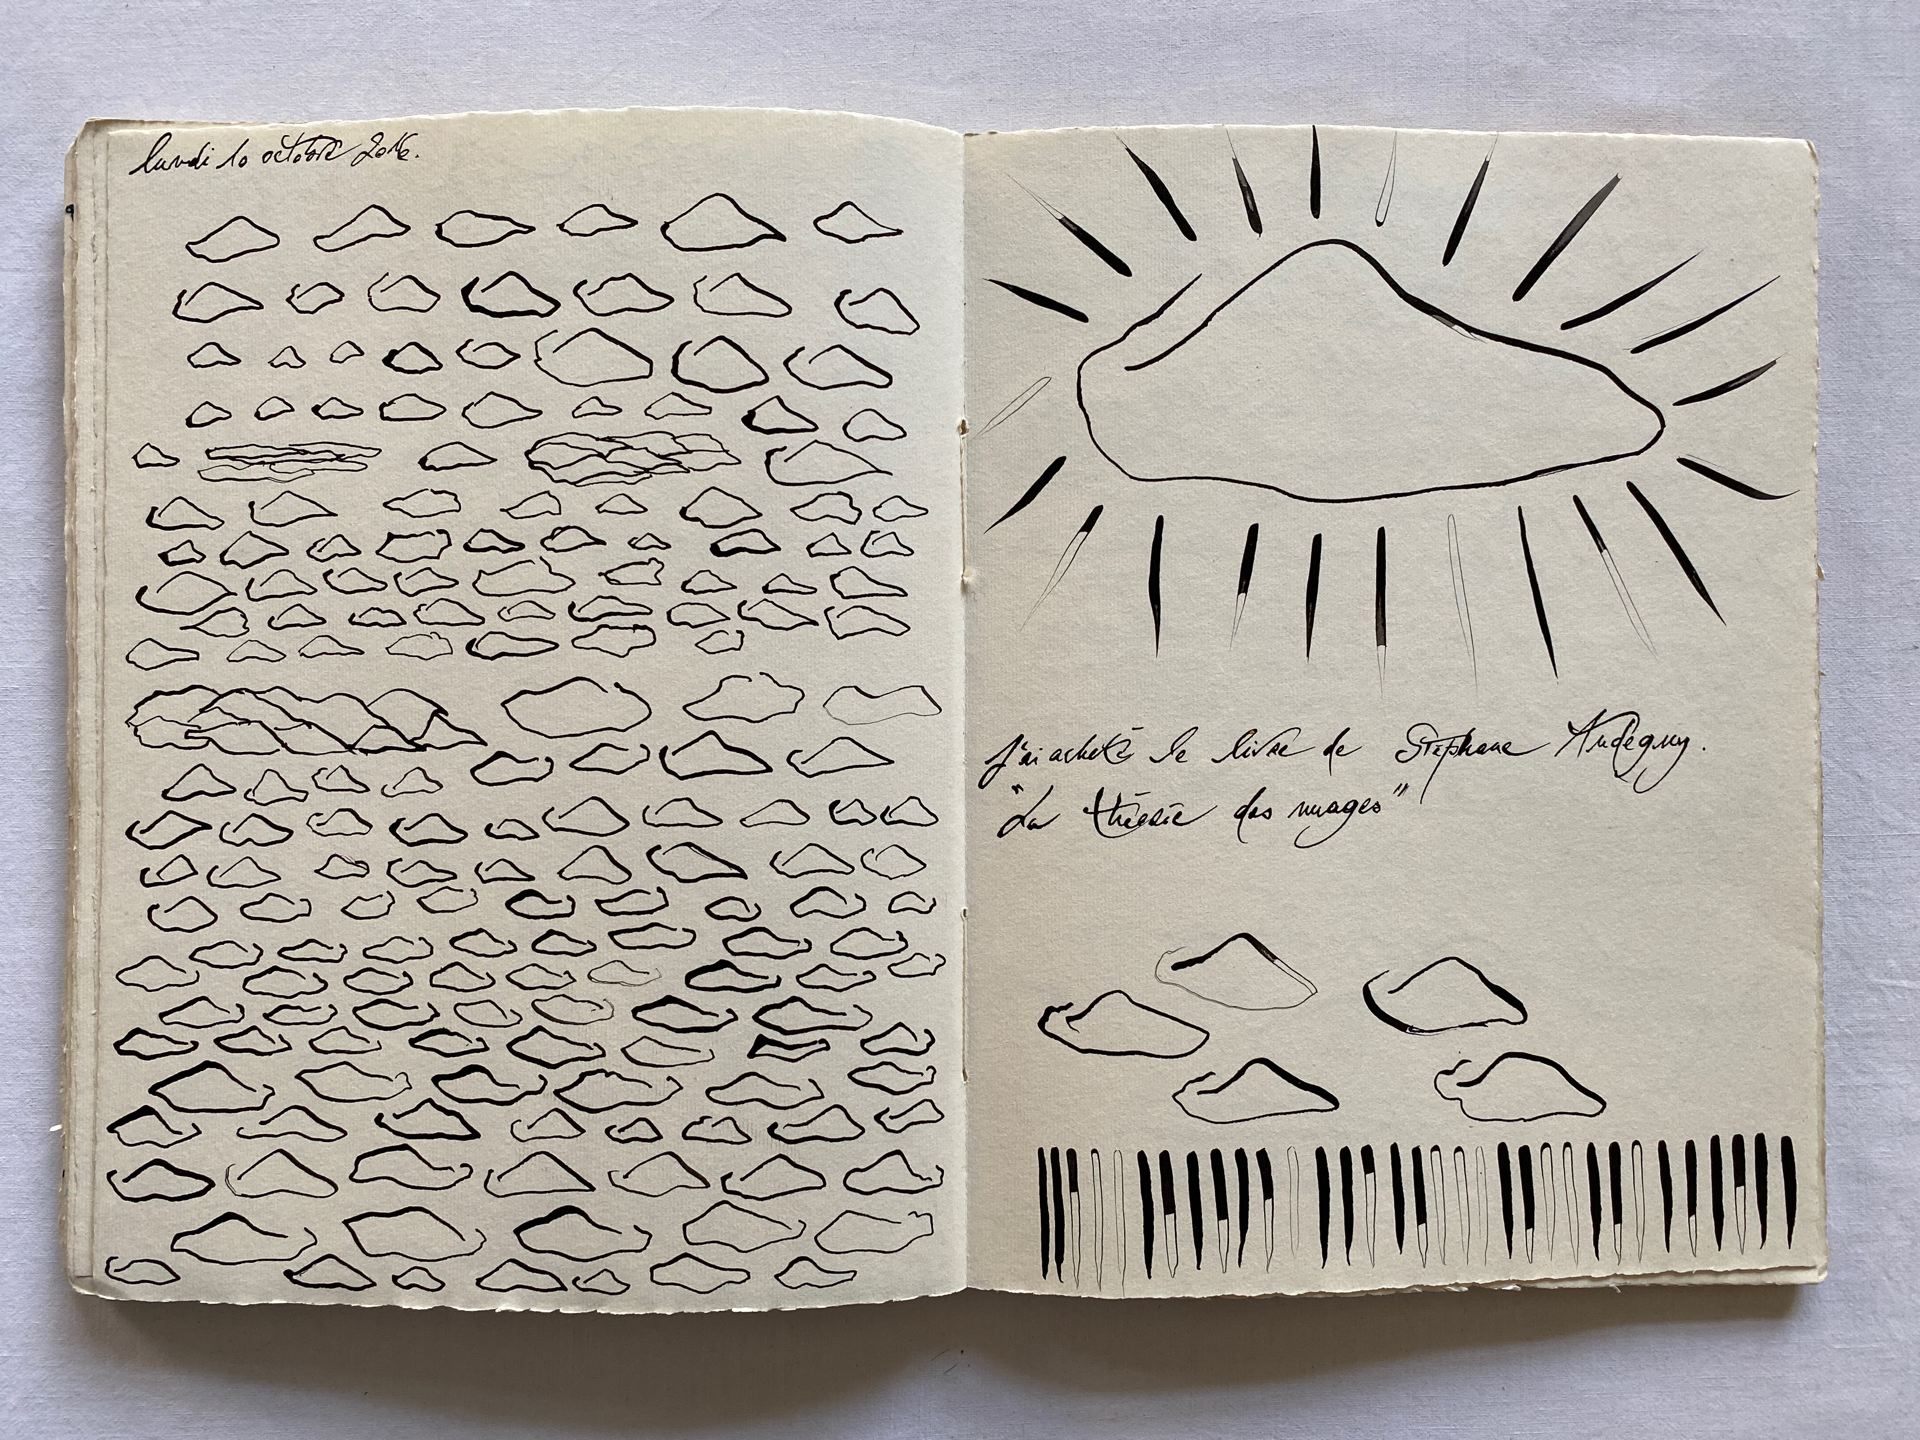 lundi 10 octobre 2016.
J'ai acheté le livre de Stéphane Audeguy.
"La théorie des nuages"